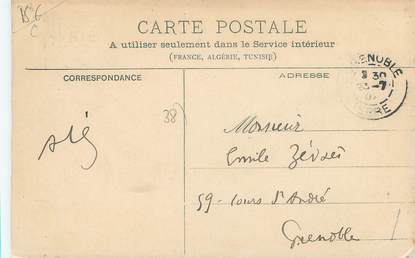 CARTE POSTALE
A utiliser seulement dans le Service intérieur
(FRANCE, ALGÉRIE, TUNISIE)
CORRESPONDANCE
ADRESSE
GRENOBLE
ISERE
38
Monsieur
Emile
59 - Cours St André
Grenoble